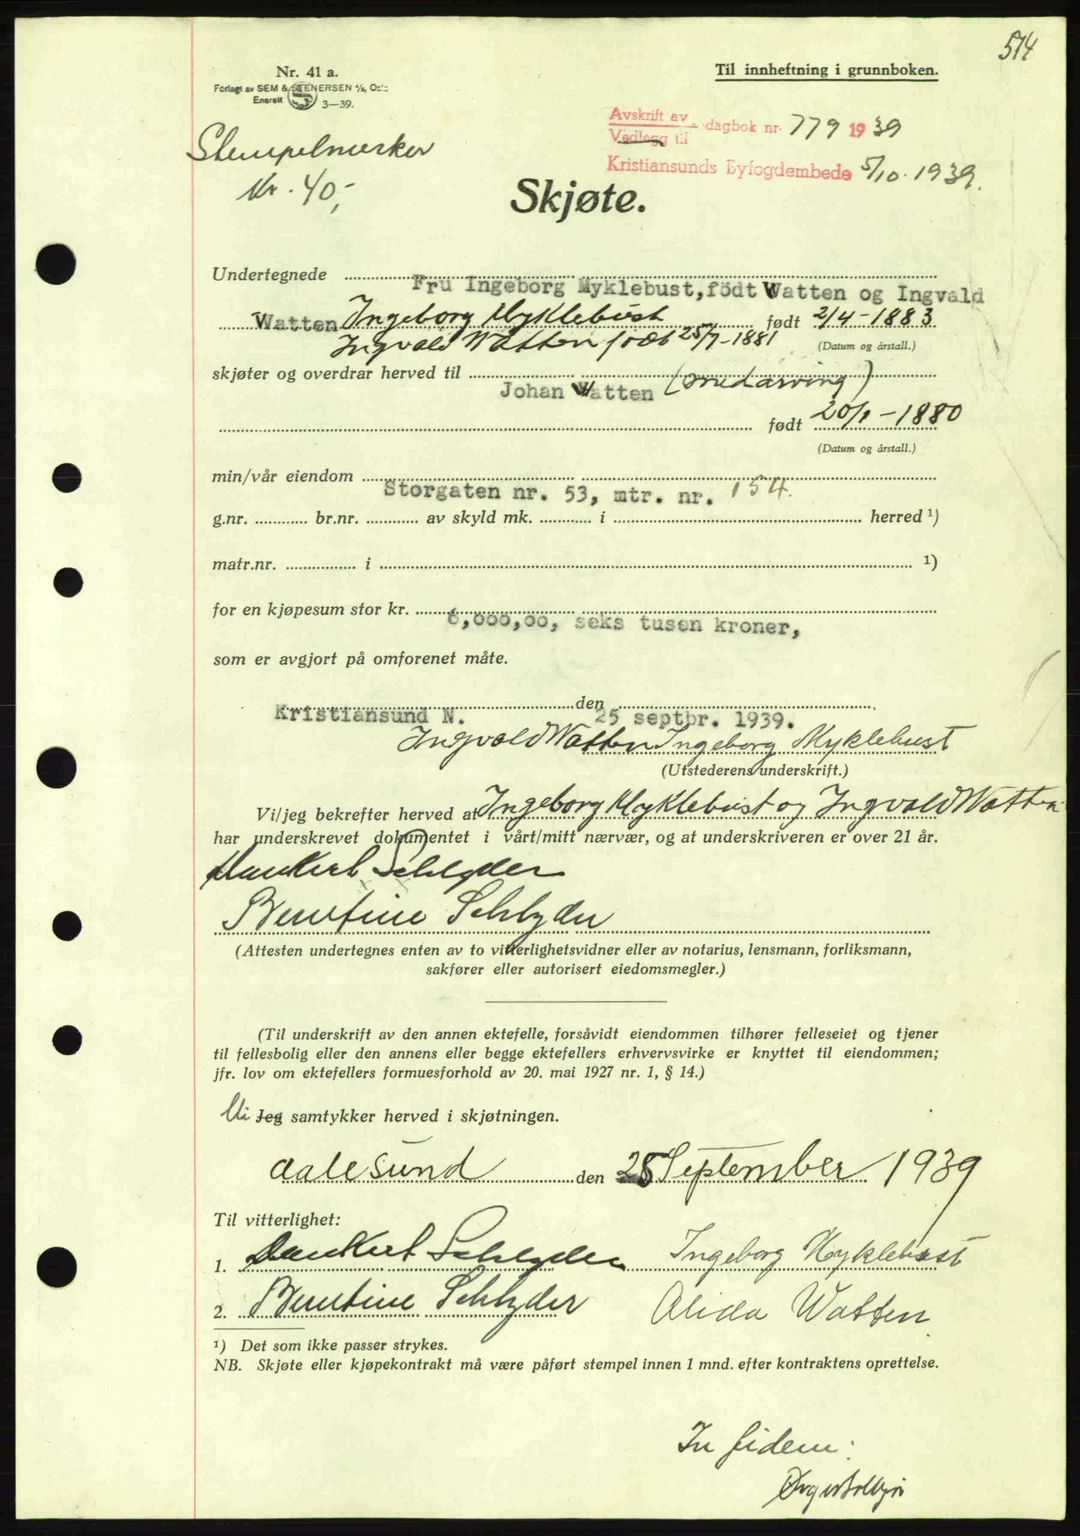 574
Nr. 41 a.
Forlagt av SEM & STENERSEN A/S, Oslo
Enerett S 3—39.
Til innheftning i grunnboken.
Avskrift av
Vedlegg til dagbok nr. 779 1939
Kristiansunds Byfogdembede 5/10. 1939.
Stempelmerker
Kr. 40,-
Skjøte.
Undertegnede Fru Ingeborg Myklebust, födt Watten og Ingvald
Watten Ingeborg Myklebust født 2/4-1883
Ingvald Watten født 25/7-1881 (Datum og årstall.)
skjøter og overdrar herved til Johan Watten (medarving)
født 20/1-1880
(Datum og årstall.)
min/vår eiendom Storgaten nr. 53, mtr. nr. 154.
g.nr. br.nr. av skyld mk. i herred ¹)
matr.nr. i ¹)
for en kjøpesum stor kr. 6,000,00, seks tusen kroner,
som er avgjort på omforenet måte.
Kristiansund N. den 25 septbr. 1939.
Ingvald Watten Ingeborg Myklebust
(Utstederens underskrift.)
Vi/jeg bekrefter herved at Ingeborg Myklebust og Ingvald Watten
har underskrevet dokumentet i vårt/mitt nærvær, og at underskriveren er over 21 år.
Dankert Schlyder
Berntine Schlyder
(Attesten undertegnes enten av to vitterlighetsvidner eller av notarius, lensmann, forliksmann,
sakfører eller autorisert eiedomsmegler.)
(Til underskrift av den annen ektefelle, forsåvidt eiendommen tilhører felleseiet og tjener
til fellesbolig eller den annens eller begge ektefellers erhvervsvirke er knyttet til eiendommen;
jfr. lov om ektefellers formuesforhold av 20. mai 1927 nr. 1, § 14.)
Vi Jeg samtykker herved i skjøtningen.
Aalesund den 28 September 1939
Til vitterlighet:
1. Dankert Schlyder Ingeborg Myklebust
2. Berntine Schlyder Alida Watten
¹) Det som ikke passer strykes.
NB. Skjøte eller kjøpekontrakt må være påført stempel innen 1 mnd. efter kontraktens oprettelse.
In fidem: